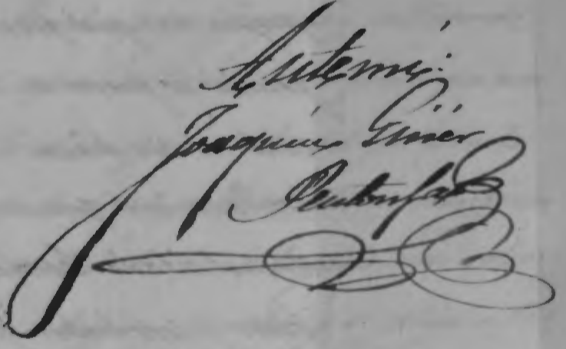 Antemi:
Joaquin Giner